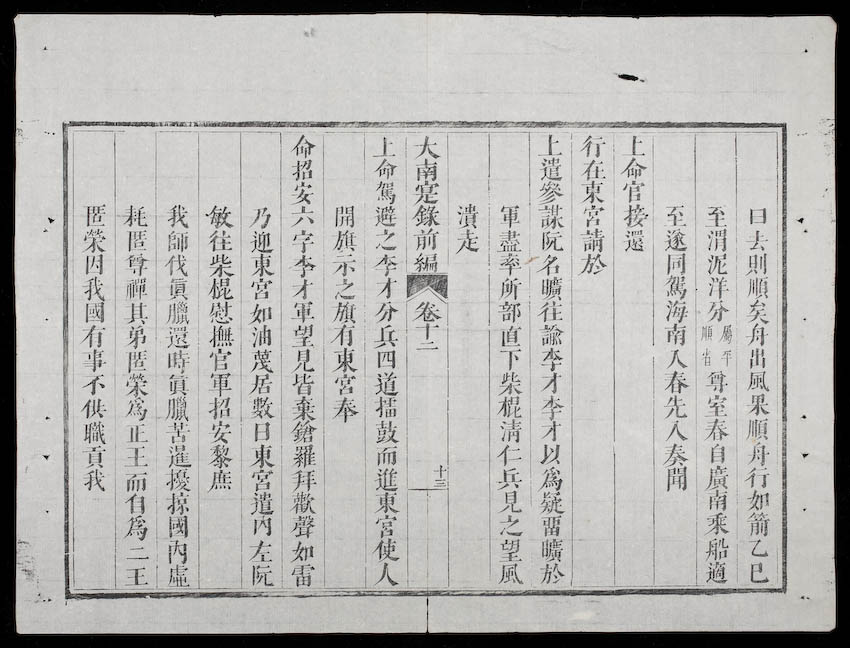 曰去則順矣舟出風果順舟行如箭乙巳
至渭泥洋分屬平順省尊室春自廣南乘船適
至遂同駕海南入春先入奏聞
上命官接還
行在東宮請於
上遣參謀阮名曠往諭李才李才以為疑畱曠於
軍盡率所部直下柴棍淸仁兵見之望風
潰走
大南寔錄前編 卷十二 十三
上命駕避之李才分兵四道擂鼓而進東宮使人
開旗示之旗有東宮奉
命招安六字李才軍望見皆棄鎗羅拜歡聲如雷
乃迎東宮如油蔑居數日東宮遣內左阮
敏往柴棍慰撫官軍招安黎庶
我師伐眞臘還時眞臘苦暹擾掠國內虛
耗匿尊禪其弟匿榮為正王而自為二王
匿榮因我國有事不供職貢我